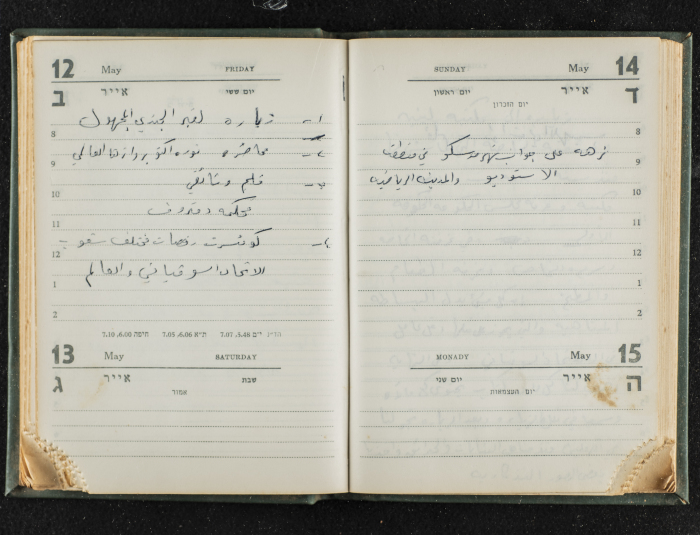 12 May FRIDAY
ב אייר יום ששי
١- زيارة لقبر الجندي المجهول
8
٢- محاضره ثورة اكتوبر واثرها العالمي
9
٣- فلم وثائقي
10
محكمه
11
٤- كونسرت رقصات مختلف شعوب
12
الاتحاد السوفياتي والعالم
1
2
הדי״נ י״ם 7.07 ,5.48 ת״א 7.05 ,6.06 חיפה 7.10 ,6.00
13 May SATURDAY
ג אייר שבת
אמור
SUNDAY May 14
יום ראשון אייר ד
יום הזכרון
8
نزهه على جوانب نهر موسكو في منطقة
9
الاستوديو والمدينه الرياضيه
10
11
12
1
2
MONADY May 15
יום שני אייר ה
יום העצמאות